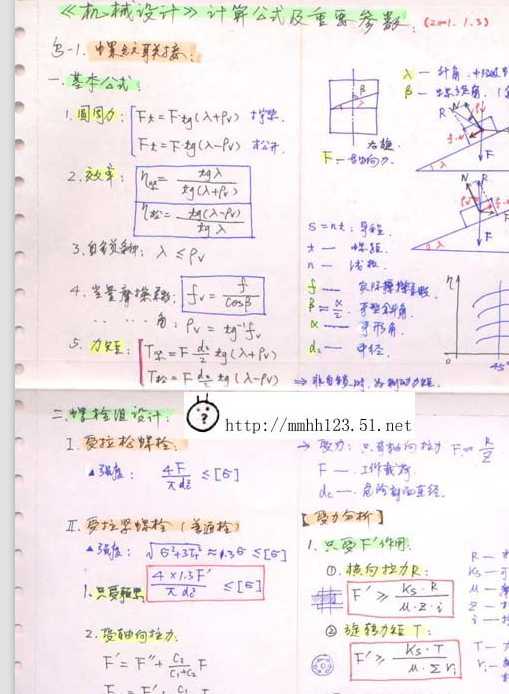 《机械设计》计算公式及重要参数. (2001.1.3)
§-1. 螺纹联接:
一. 基本公式:
1. 圆周力: Ft = F·tg(λ+ρv) 拧紧.
Ft = F·tg(λ-ρv) 松开.
2. 效率: η紧 = tgλ / tg(λ+ρv)
η松 = tg(λ-ρv) / tgλ
3. 自锁条件: λ ≤ ρv
4. 当量摩擦系数: fv = f / cosβ
…… 角: ρv = tg⁻¹fv
5. 力矩: T紧 = F d₂/2 tg(λ+ρv)
T松 = F d₂/2 tg(λ-ρv) ⇒ 非自锁时, 为制动力矩.
λ — 升角.
β
λ β
右旋
F — 轴向力.
N R F
λ
N R F
λ
S = nt: 导程.
t — 螺距.
n — 线数.
f — 实际摩擦系数.
β = α/2 — 牙型斜角.
α — 牙形角.
d₂ — 中径.
η
0 45°
二. 螺栓组设计:
http://mmhh123.51.net
I. 受拉松螺栓:
▲强度: 4F / πd₂² ≤ [σ]
→ 受力: 只有轴向拉力 F = R/Z
F — 工作载荷
dc — 危险剖面直径.
II. 受拉紧螺栓 (普通栓)
▲强度: √σ²+3τ² ≈ 1.3σ ≤ [σ]
1. 只受预紧 4×1.3F' / πdc² ≤ [σ]
2. 受轴向拉力:
F' = F'' + C₂/(C₁+C₂) F
【受力分析】
1. 只受F'作用:
①. 横向拉力R:
F' ≥ Ks·R / μ·z·i
② 旋转力矩T:
F' ≥ Ks·T / μ·Σri
R —
Ks —
μ —
z —
i —
T —
ri —